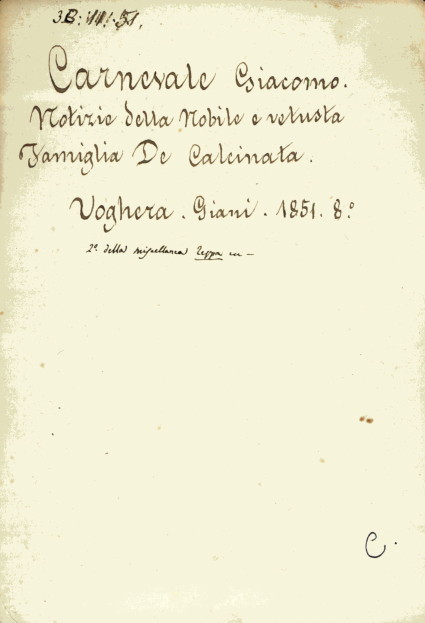 3B: 14: 51.
Carnevale Giacomo.
Notizie della Nobile e vetusta
Famiglia De Calcinata.
Voghera. Giani. 1851. 8.º
2.º della miscellanea
C.